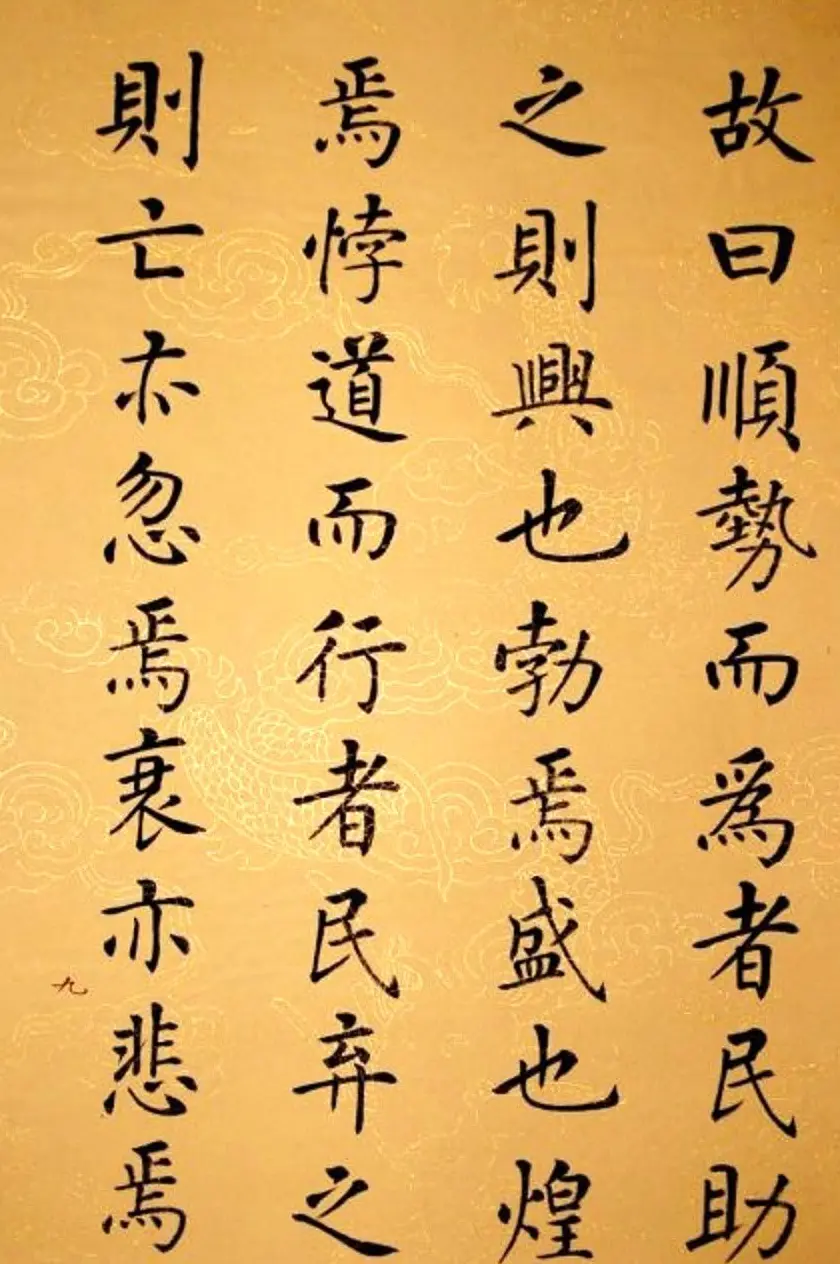 故曰順勢而爲者民助
之則興也勃焉盛也煌
焉悖道而行者民弃之
則亡亦忽焉衰亦悲焉
九